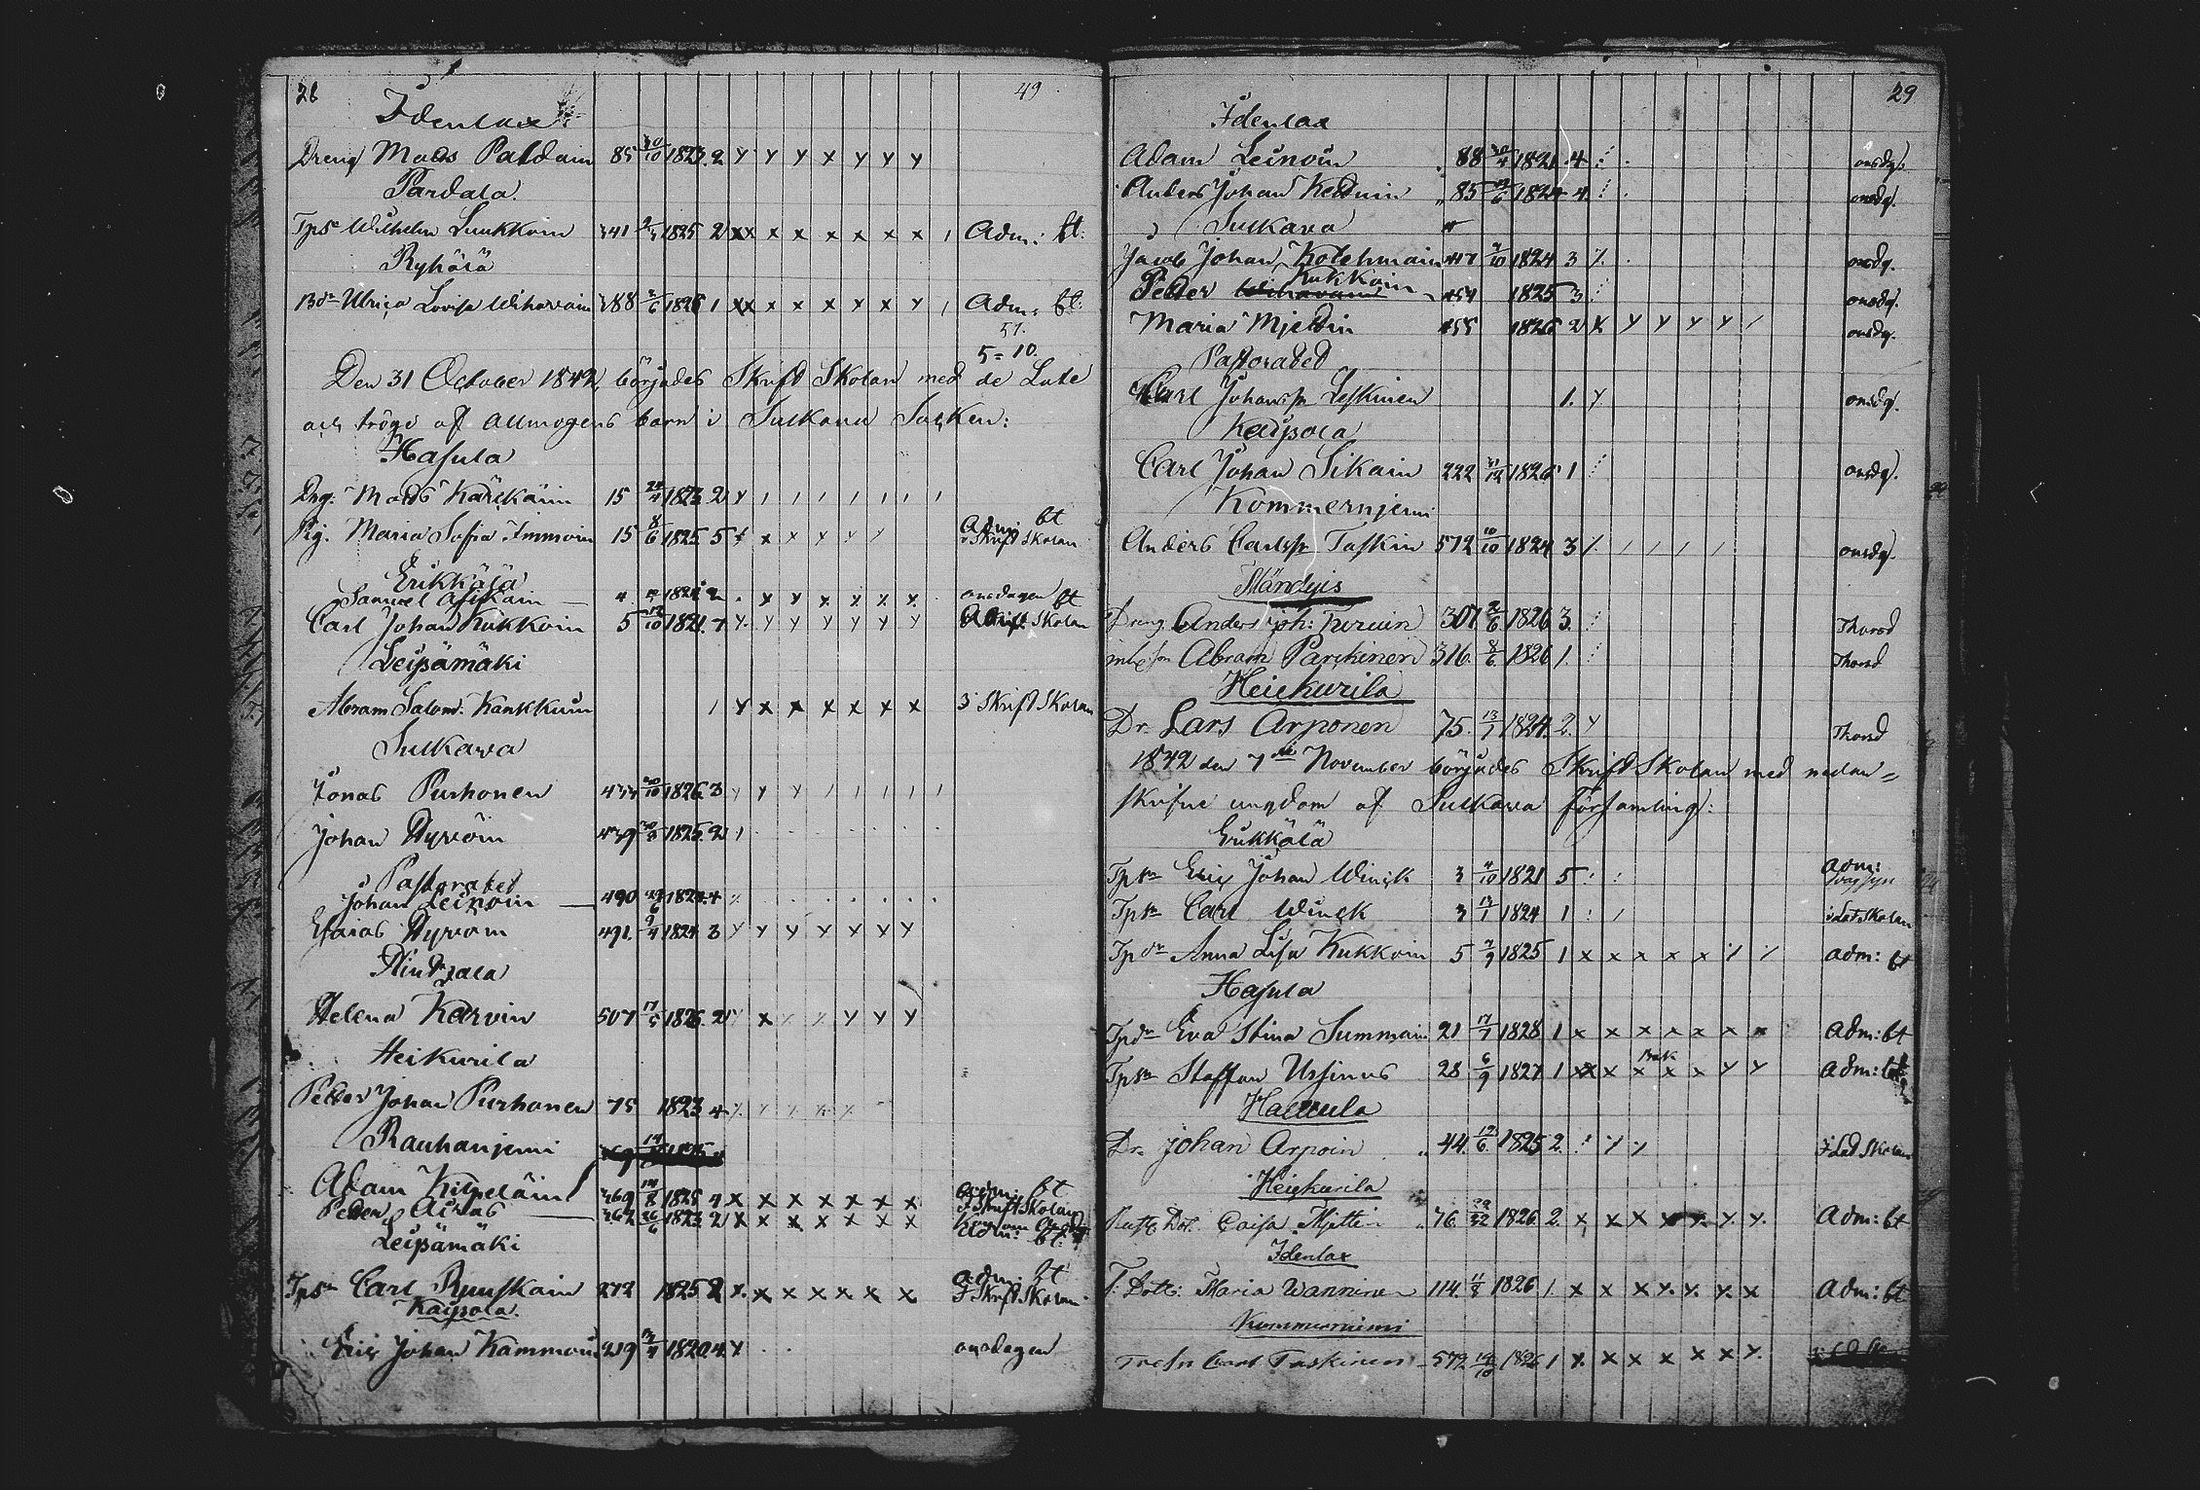 28 49
Idenlax
Dreng Mats Paldain 85 30/10 1823. 2 y y y x y y y
Partala.
Tpsn Wilhelm Luukkoin 341 1825 2 xx x x x x x x 1 Adm: bt:
Ryhälä
Bdr Ulrica Lovisa Wiharvain 388 2/6 1826 1 xx x x x x x y 1 Adm: bt:
57.
5=10.
Den 31 October 1842, börjades Skrift Skolan med de Late
och tröge af allmogens barn i Sulkava Socken:
Hasula
Drg. Mats Kärckäin 15 24/4 1823. 2 y 1 1 1 1 1 1 1
Pig. Maria Sofia Immoin 15 8/6 1825 5 x x x y y y Adm: bt
i Skrift Skolan
Erikkälä
Samuel Asikain 4 1821 2 . x y x y x x. onsdagen bt
Carl Johan Kukkoin 5 12/10 1821. y y y y y y y Skrift Skolan
Leipämäki
Abram Salom: Kankkuin 1 y x x x x x x i Skrift Skolan
Sulkava
Jonas Purhonen 30/10 1826. 3 y y y 1 1 1 1 1
Johan Hyvöin 439 1825. 2 1 . . . . . . .
Pastoratet
Johan Leinoin 490 29/6 1824. 4 y . . . . . . .
Esaias Hyvöin 491. 9/4 1824 3 y y y y y y y
Helena Karvin 507 17/5 1826. 2 y x y y y y y
Heikurila
Petter Johan Purhonen 75 1823 4 y y y y y -
Rauhanjemi
Adam Kilpeläin 369 14/8 1825 4 x x x x x x x Adm: bt
i Skrift Skolan
Petter Airas 362 26/6 1823 2 x x x x x x x
Adm: bt:
Leipämäki
Tpsn Carl Ruuskain 272 1825 2 x. x x x x x x Adm: bt
i Skrift Skolan
Kaipola.
Eric Johan Kammoin 219 1820. 4. y . . onsdagen
29
Idenlax
Adam Leinoin 88 30/4 1821. 4 onsdg.
Anders Johan Kettuin 85 1824 4. onsdg.
Sulkava
Jacob Johan Kolehmain 417 9/10 1824 3 y. onsdg.
Kukkoin
Petter 454 1825 3 onsdg.
Maria Mjettin 455 1826 2 x y y y y 1 onsdg.
Pastoratet
Carl Johansn Leskinen 1. y onsdg.
Kaipola
Carl Johan Sikain 222 31/12 1826 1 onsdg.
Kommernjemi
Anders Carlsn Taskin 572 10/10 1824 3 y. 1 1 1 1 onsdg.
Dreng Anders 307 2/6 1826 3. Thorsd
Abram Parckinen 316. 8/6 1826 1. Thorsd
Heickurila
Dr. Lars Arponen 75. 13/7 1824. 2. y Thorsd
1842 den 7de November börjades Skrift Skolan med nedan=
skrifne ungdom af Sulkava församling:
Erikkälä
Tpsn Eric Johan Winck 3 4/10 1821 5 Adm:
Tpsn Carl Winck 3 13/1 1824 1 : 1 i Lat Skolan
Tpdr Anna Lisa Kukkoin 5 2/9 1825 1 x x x x x y y Adm: bt
Hasula
Tpdr Eva Stina Summain 21 17/7 1828 1 x x x x x x x Adm: bt
Tpsn Staffan Ursinus 28 6/9 1827 1 xx x x x x y y Adm: bt
Hallula
Dr. Johan Arpoin 44. 12/6. 1825 2. : y y i Lat Skolan
Heickurila
Caisa Mjettin 76. 1826. 2. x x x x y. y. y. Adm: bt
Idenlax
T. Dott: Maria Wanninen 114. 11/8 1826 1. x x x y. y. y. x Adm: bt
Kommerniemi
Carl Taskinen 572. 1826 1 y. x x x x x y.